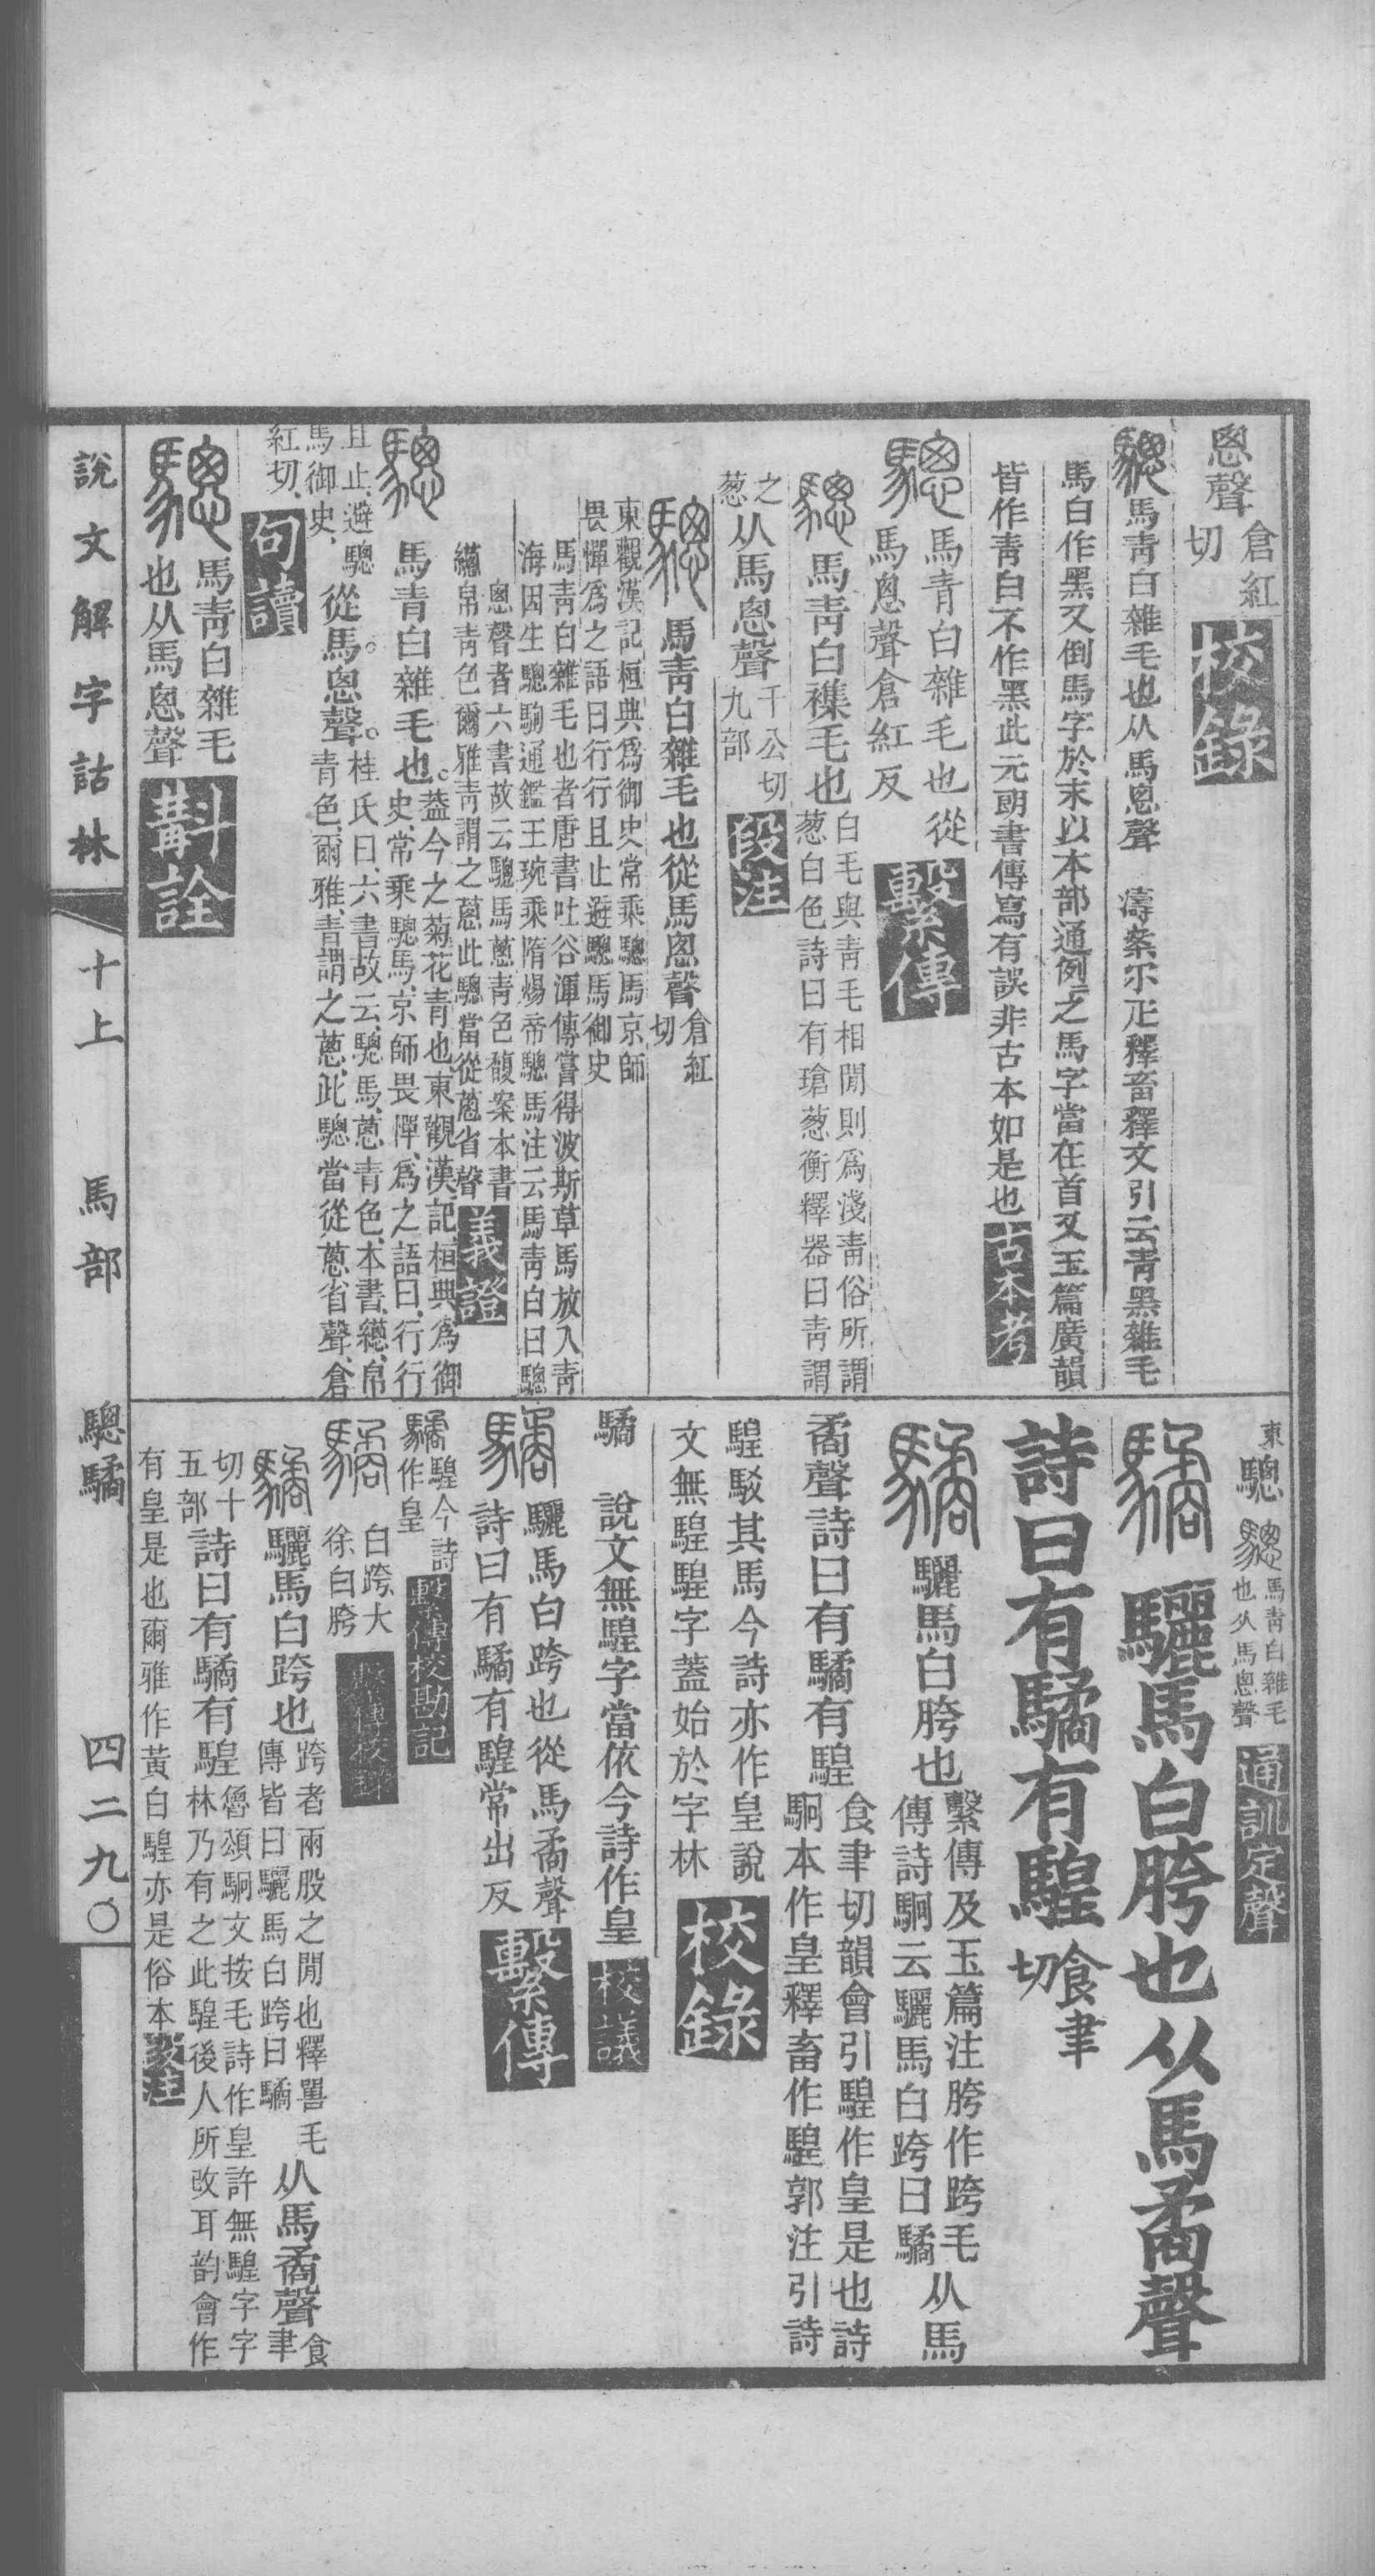 悤聲倉紅切校錄
驄馬青白雜毛也从馬悤聲　濤案尔疋釋畜釋文引云青黑雜毛
馬白作黑又倒馬字於末以本部通例之馬字當在首又玉篇廣韻
皆作青白不作黑此元朗書傳寫有誤非古本如是也古本考
驄馬青白雜毛也從
馬悤聲倉紅反繫傳
驄馬青白襍毛也白毛與青毛相閒則爲淺青俗所謂
葱白色詩曰有瑲葱衡釋器曰青謂
之葱从馬悤聲千公切九部段注
驄馬青白雜毛也從馬悤聲倉紅切
東觀漢記桓典爲御史常乘驄馬京師
畏憚爲之語曰行行且止避驄馬御史
馬青白雜毛也者唐書吐谷渾傳嘗得波斯草馬放入青
海因生驄駒通鑑王琬乘隋煬帝驄馬注云馬青白曰驄
悤聲者六書故云驄馬蔥青色馥案本書
繱帛青色爾雅青謂之蔥此驄當從蔥省聲義證
驄馬青白雜毛也。蓋今之菊花青也、東觀漢記、桓典爲御
史、常乘驄馬、京師畏憚、爲之語曰、行行
且止、避驄馬御史、從馬。悤聲。桂氏曰、六書故云、驄馬、蔥青色、本書、繱、帛
青色、爾雅、青謂之蔥、此驄當從蔥省聲、倉
紅切、句讀
驄馬青白雜毛
也从馬悤聲斠詮
東驄驄馬青白雜毛也从馬悤聲通訓定聲
驈驪馬白胯也从馬矞聲
詩曰有驈有騜食聿切
驈驪馬白胯也繫傳及玉篇注胯作跨毛
傳詩駉云驪馬白跨曰驈从馬
矞聲詩曰有驈有騜食聿切韻會引騜作皇是也詩
駉本作皇釋畜作騜郭注引詩
騜駁其馬今詩亦作皇說
文無騜騜字蓋始於字林校錄
驈　說文無騜字當依今詩作皇校議
驈驪馬白跨也從馬矞聲
詩曰有驈有騜常出反繫傳
驈騜今詩作皇繫傳校勘記
驈白跨大徐白胯繫傳校錄
驈驪馬白跨也跨者兩股之閒也釋嘼毛
傳皆曰驪馬白跨曰驈从馬矞聲食聿
切十五部詩曰有驈有騜魯頌駉文按毛詩作皇許無騜字字
林乃有之此騜後人所改耳韵會作
有皇是也爾雅作黃白騜亦是俗本段注
說文解字詁林　十上　馬部　驄驈　四二九〇